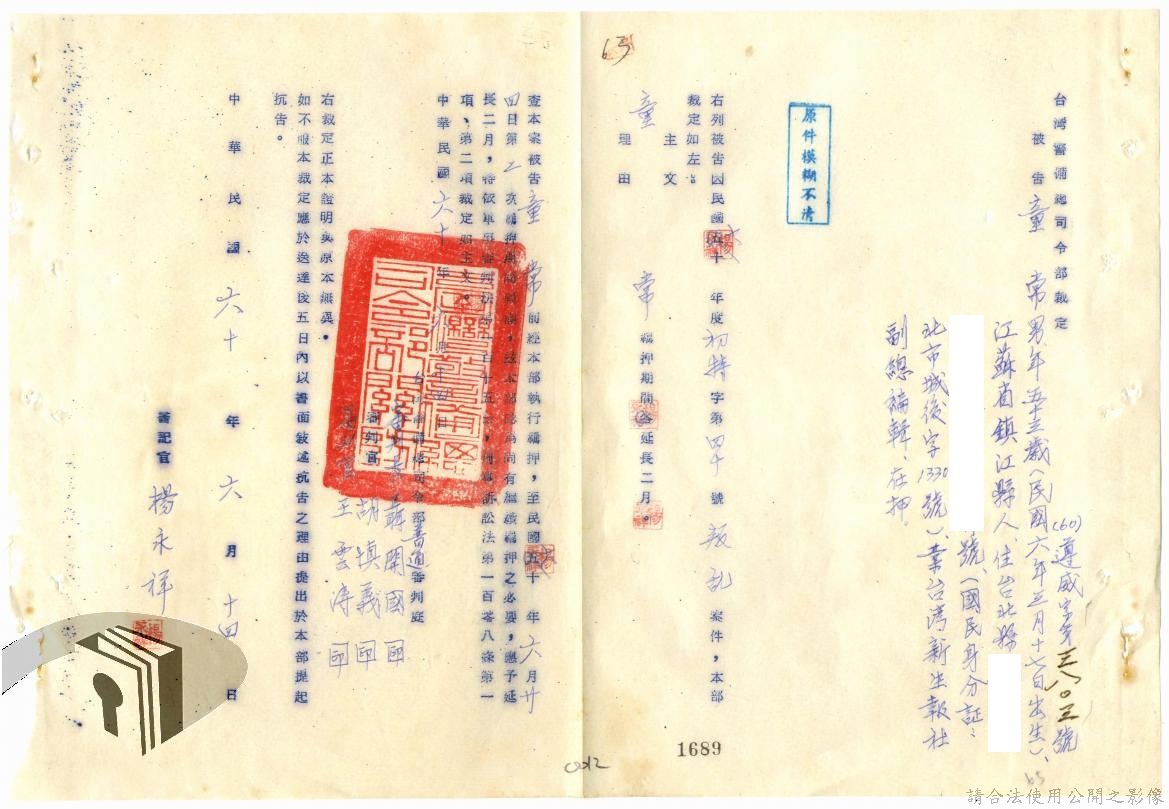 台灣警備總司令部裁定
(60)遵威字第三八〇三號
被告童常男年五十三歲(民國六年三月十七日出生)、
江蘇省鎮江縣人、住台北縣
號、(國民身分証：
北市城後字1330號)、業台湾新生報社
副總編輯在押
原件模糊不清
右列被告因民國六十年度初特字第四十號叛乱案件，本部
裁定如左：
主文
童常羈押期間延長二月。
理由
63
1689
65
查本案被告童常前經本部執行羈押，至民國六十年六月廿
四日第二次羈押期間屆滿，茲本部認為尚有繼續羈押之必要，應予延
長二月，特依軍事審判法第一百十五條，刑事訴訟法第一百零八條第一
項、第二項裁定如主文。
中華民國六十年六月十四日
台灣警備總司令部普通審判庭
蔣開國印
審判官胡慎義印
王雲濤印
右裁定正本證明與原本無異。
如不服本裁定應於送達後五日內以書面敘述抗告之理由提出於本部提起
抗告。
中華民國六十年六月十四日
書記官楊永祥
0012
請合法使用公開之影像